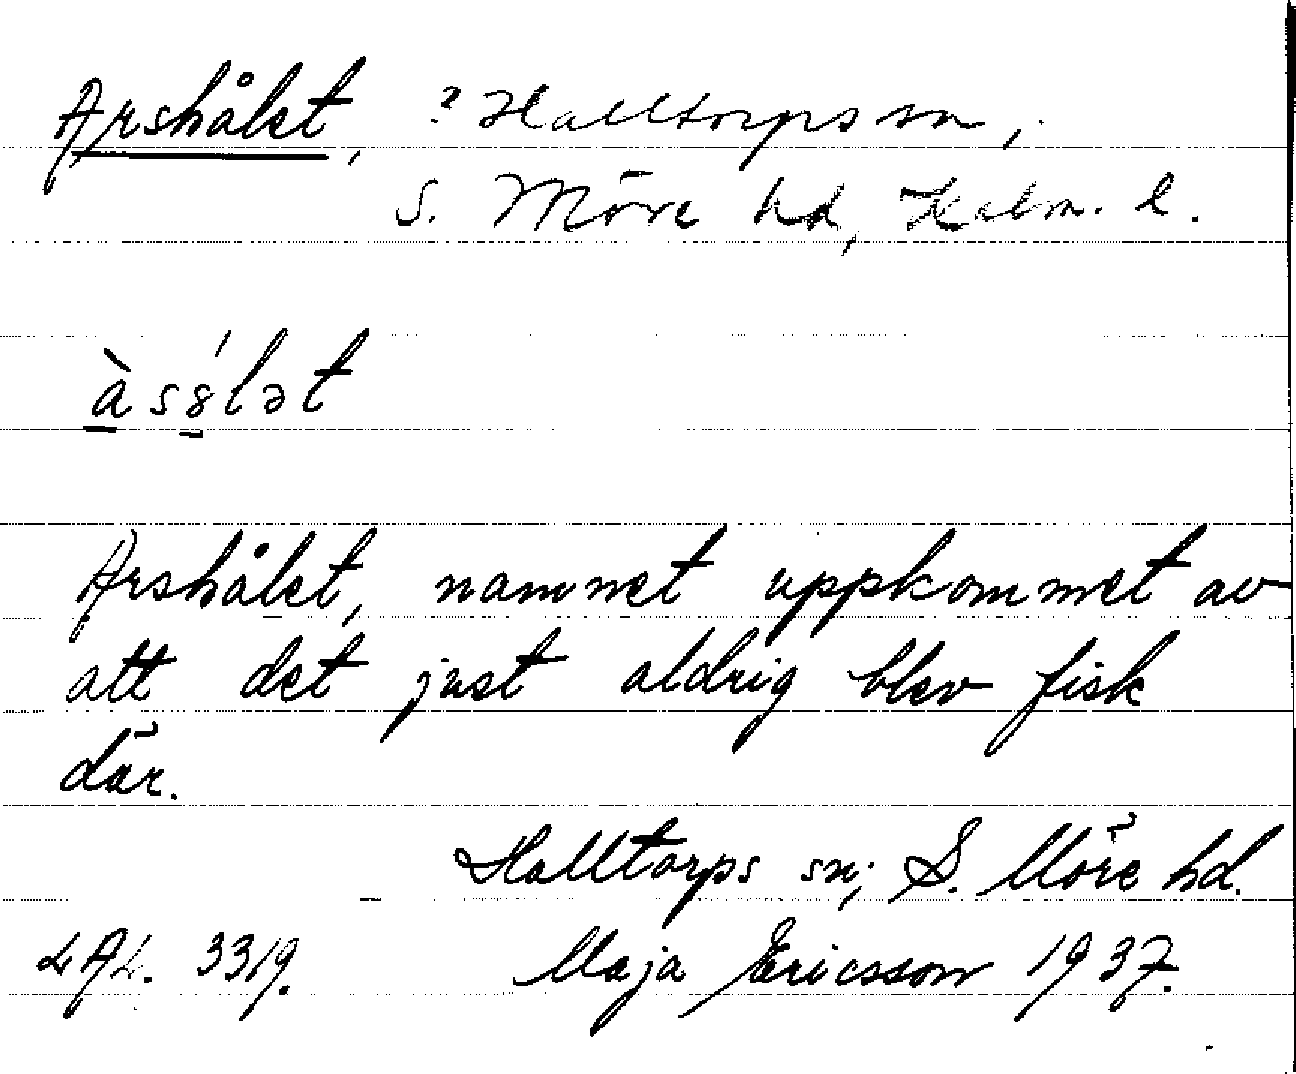 Arshålet, ? Halltorps sn,
S. Möre hd, Kalm. l.
às8́lət
Arshålet, namnet uppkommet av
att det just aldrig blev fisk
där.
Halltorps sn; S. Möre hd.
LAL. 3319. Maja Ericsson 1937.